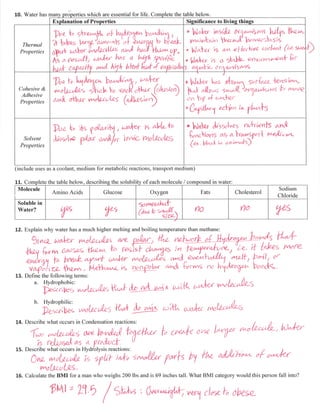 10. Water has many properties which are essential for life. Complete the table below.
Explanation of Properties
Significance to living things
Thermal
Properties
Due to strength of hydrogen bonding,
it takes large amounts of energy to break
apart water molecules and heat them up.
As a result, water has a high specific
heat capacity and high latent heat of evaporation
• Water inside organisms helps them
maintain thermal homeostasis
• Water is an effective coolant (i.e. sweat)
• Water is a stable environment for
aquatic organisms
Cohesive &
Adhesive
Properties
Due to hydrogen bonding, water
molecules stick to each other (cohesion)
and other molecules (adhesion)
• Water has strong surface tension,
that allows small organisms to move
on top of water
• Capillary action in plants
Solvent
Properties
Due to its polarity, water is able to
dissolve polar and/or ionic molecules
• Water dissolves nutrients and
functions as a transport medium
(i.e. blood in animals)
(include uses as a coolant, medium for metabolic reactions, transport medium)
11. Complete the table below, describing the solubility of each molecule / compound in water:
Molecule
Amino Acids
Glucose
Oxygen
Fats
Cholesterol
Sodium
Chloride
Soluble in
Water?
yes
yes
Somewhat
(due to small
size)
no
no
yes
12. Explain why water has a much higher melting and boiling temperature than methane:
Since water molecules are polar, the network of Hydrogen bonds that
they form causes them to resist changes in temperature, i.e. it takes more
energy to break apart water molecules and eventually melt, boil, or
vaporize them. Methane is nonpolar and forms no hydrogen bonds.
13. Define the following terms:
a. Hydrophobic:
Describes molecules that do not mix with water molecules
b. Hydrophilic:
Describes molecules that do mix with water molecules
14. Describe what occurs in Condensation reactions:
Two molecules are bonded together to create one larger molecule. Water
is released as a product.
15. Describe what occurs in Hydrolysis reactions:
One molecule is split into smaller parts by the addition of water
molecules.
16. Calculate the BMI for a man who weighs 200 lbs and is 69 inches tall. What BMI category would this person fall into?
BMI = 29.5 / Status: Overweight; very close to obese.